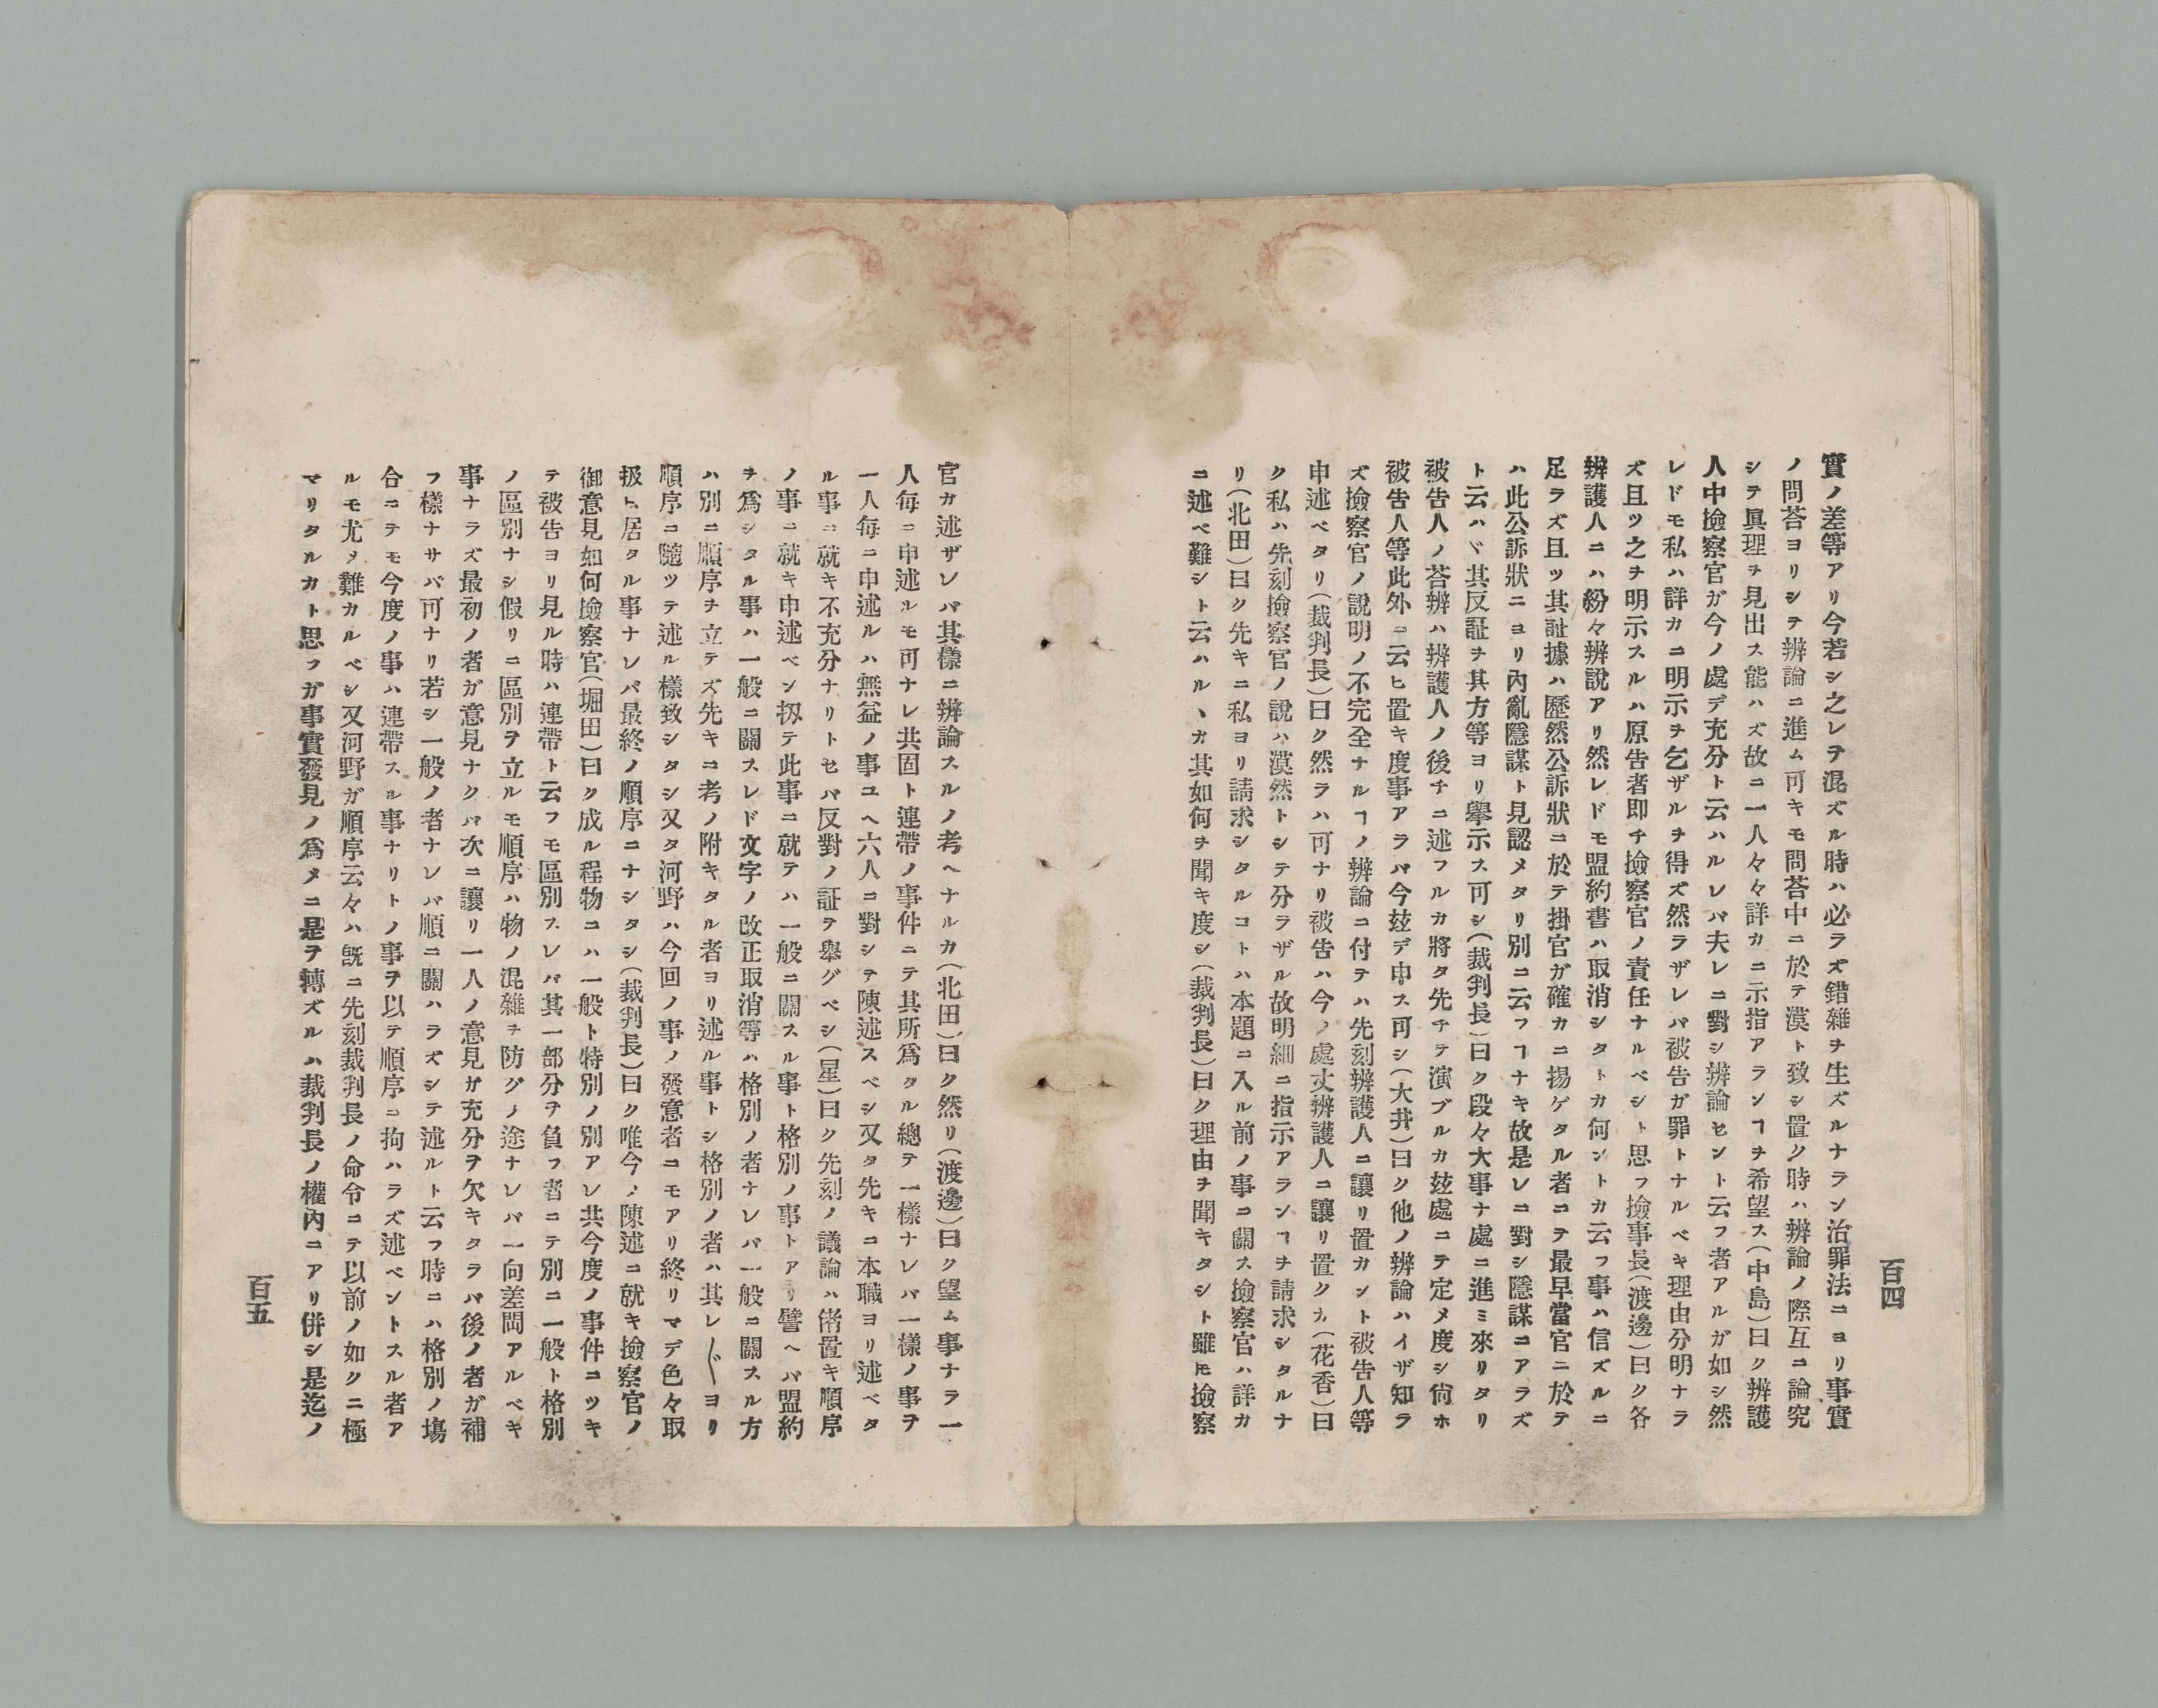 百四
實ノ差等アリ今若シ之レヲ混ズル時ハ必ラズ錯雜ヲ生ズルナラン治罪法ニヨリ事實
ノ問荅ヨリシテ辨論ニ進ム可キモ問荅中ニ於テ漠ト致シ置ク時ハ辨論ノ際互ニ論究
シテ眞理ヲ見出ス能ハズ故ニ一人々々詳カニ示指アランヿヲ希望ス(中島)曰ク辨護
人中撿察官ガ今ノ處デ充分ト云ハルレバ夫レニ對シ辨論セント云フ者アルガ如シ然
レドモ私ハ詳カニ明示ヲ乞ザルヲ得ズ然ラザレバ被告ガ罪トナルベキ理由分明ナラ
ズ且ツ之ヲ明示スルハ原告者即チ撿察官ノ責任ナルベシト思フ撿事長(渡邊)曰ク各
辨護人ニハ紛々辨說アリ然レドモ盟約書ハ取消シタトカ何ントカ云フ事ハ信ズルニ
足ラズ且ツ其証據ハ歷然公訴狀ニ於テ掛官ガ確カニ揚ゲタル者ニテ最早當官ニ於テ
ハ此公訴狀ニヨリ內亂隱謀ト見認メタリ別ニ云フヿナキ故是レニ對シ隱謀ニアラズ
ト云ハヾ其反証ヲ其方等ヨリ擧示ス可シ(裁判長)曰ク段々大事ナ處ニ進ミ來リタリ
被告人ノ荅辨ハ辨護人ノ後チニ述フルカ將タ先チテ演ブルカ玆處ニテ定メ度シ尙ホ
被告人等此外ニ云ヒ置キ度事アラバ今玆デ申ス可シ(大井)曰ク他ノ辨論ハイザ知ラ
ズ撿察官ノ說明ノ不完全ナルヿノ辨論ニ付テハ先刻辨護人ニ讓リ置カント被告人等
申述ベタリ(裁判長)曰ク然ラハ可ナリ被告ハ今ノ處丈辨護人ニ讓リ置クカ(花香)曰
ク私ハ先刻撿察官ノ說ハ漠然トシテ分ラザル故明細ニ指示アランヿヲ請求シタルナ
リ(北田)曰ク先キニ私ヨリ請求シタルコトハ本題ニ入ル前ノ事ニ關ス撿察官ハ詳カ
ニ述ベ難シト云ハルヽカ其如何ヲ聞キ度シ(裁判長)曰ク理由ヲ聞キタシト雖モ撿察
官カ述ザレバ其樣ニ辨論スルノ考ヘナルカ(北田)曰ク然リ(渡邊)曰ク望ム事ナラ一
人每ニ申述ルモ可ナレ共固ト連帶ノ事件ニテ其所爲タル總テ一樣ナレバ一樣ノ事ヲ
一人每ニ申述ルハ無益ノ事ユヘ六人ニ對シテ陳述スベシ又タ先キニ本職ヨリ述ベタ
ル事ニ就キ不充分ナリトセバ反對ノ証ヲ擧グベシ(星)曰ク先刻ノ議論ハ偖置キ順序
ノ事ニ就キ申述ベン扨テ此事ニ就テハ一般ニ關スル事ト格別ノ事トアリ譬ヘバ盟約
ヲ爲シタル事ハ一般ニ關スレド文字ノ改正取消等ハ格別ノ者ナレバ一般ニ關スル方
ハ別ニ順序ヲ立テズ先キニ考ノ附キタル者ヨリ述ル事トシ格別ノ者ハ其レ〴〵ヨリ
順序ニ隨ツテ述ル樣致シタシ又タ河野ハ今回ノ事ノ發意者ニモアリ終リマデ色々取
扱ヒ居タル事ナレバ最終ノ順序ニナシタシ(裁判長)曰ク唯今ノ陳述ニ就キ撿察官ノ
御意見如何撿察官(堀田)曰ク成ル程物ニハ一般ト特別ノ別アレ共今度ノ事件ニツキ
テ被告ヨリ見ル時ハ連帶ト云フモ區別スレバ其一部分ヲ負フ者ニテ別ニ一般ト格別
ノ區別ナシ假リニ區別ヲ立ルモ順序ハ物ノ混雜ヲ防グノ途ナレバ一向差問アルベキ
事ナラズ最初ノ者ガ意見ナクバ次ニ讓リ一人ノ意見ガ充分ヲ欠キタラバ後ノ者ガ補
フ樣ナサバ可ナリ若シ一般ノ者ナレバ順ニ關ハラズシテ述ルト云フ時ニハ格別ノ塲
合ニテモ今度ノ事ハ連帶スル事ナリトノ事ヲ以テ順序ニ拘ハラズ述ベントスル者ア
ルモ尤メ難カルベシ又河野ガ順序云々ハ旣ニ先刻裁判長ノ命令ニテ以前ノ如クニ極
マリタルカト思フガ事實發見ノ爲メニ是ヲ轉ズルハ裁判長ノ權內ニアリ併シ是迄ノ
百五